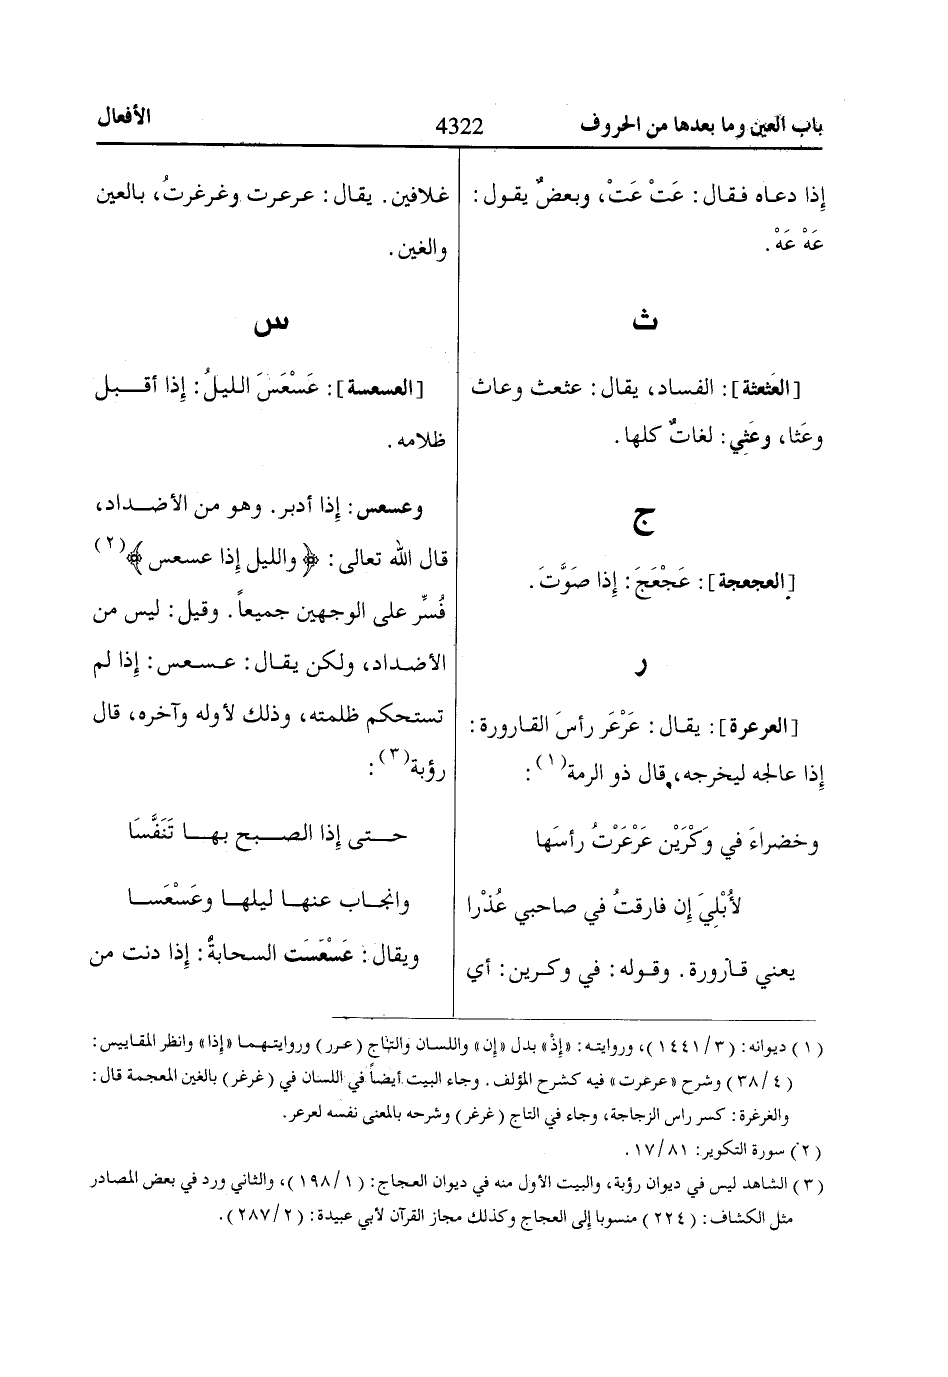 باب العين وما بعدها من الحروف 4322 الأفعال
إذا دعاه فقال: عَتْ عَتْ، وبعضٌ يقول:
عَهْ عَهْ.
ث
[العَثعثة]: الفساد، يقال: عثعث وعاث
وعَثا، وعَثي: لغاتٌ كلها.
ج
[العجعجة]: عَجْعَجَ: إذا صَوَّتَ.
ر
[العرعرة]: يقال: عَرْعَر رأسَ القارورة:
إذا عالجه ليخرجه، قال ذو الرمة(١):
وخضراءَ في وَكْرَيْن عَرْعَرْتُ رأسَها
لأُبْلِيَ إن فارقتُ في صاحبي عُذْرا
يعني قارورة. وقوله: في وكرين: أي
غلافين. يقال: عرعرت وغرغرتُ، بالعين
والغين.
س
[العسعسة]: عَسْعَسَ الليلُ: إذا أقبل
ظلامه.
وعسعس: إذا أدبر. وهو من الأضداد،
قال الله تعالى: ﴿والليل إذا عسعس﴾(٢)
فُسِّر على الوجهين جميعاً. وقيل: ليس من
الأضداد، ولكن يقال: عسعس: إذا لم
تستحكم ظلمته، وذلك لأوله وآخره، قال
رؤبة(٣):
حتى إذا الصبح بها تَنَفَّسَا
وانجاب عنها ليلها وعَسْعَسا
ويقال: عَسْعَسَت السحابةُ: إذا دنت من
(١) ديوانه: (١٤٤١/٣)، وروايته: «إذْ» بدل «إن» واللسان والتاج (عرر) وروايتهما «إذا» وانظر المقاييس:
(٣٨/٤) وشرح «عرعرت» فيه كشرح المؤلف. وجاء البيت أيضاً في اللسان في (غرغر) بالغين المعجمة قال:
والغرغرة: كسر راس الزجاجة، وجاء في التاج (غرغر) وشرحه بالمعنى نفسه لعرعر.
(٢) سورة التكوير: ١٧/٨١.
(٣) الشاهد ليس في ديوان رؤبة، والبيت الأول منه في ديوان العجاج: (١٩٨/١)، والثاني ورد في بعض المصادر
مثل الكشاف: (٢٢٤) منسوبا إلى العجاج وكذلك مجاز القرآن لأبي عبيدة: (٢٨٧/٢).